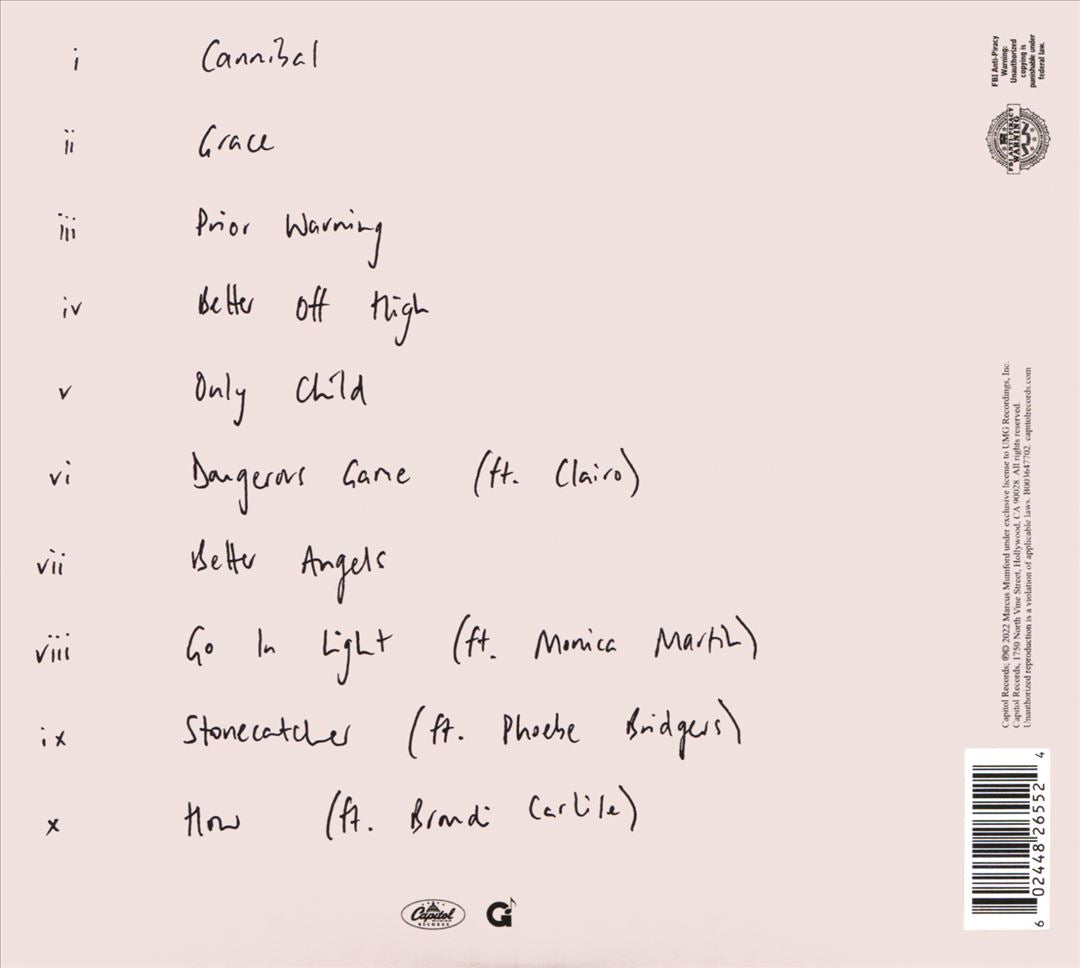 i Cannibal
ii Grace
iii Prior Warning
iv Better Off High
v Only Child
vi Dangerous Game (ft. Clairo)
vii Better Angels
viii Go In Light (ft. Monica Martin)
ix Stonecatcher (ft. Phoebe Bridgers)
x How (ft. Brandi Carlile)
Capitol
RECORDS
G
FBI Anti-Piracy
Warning:
Unauthorized
copying is
punishable under
federal law.
FBI ANTI-PIRACY
WARNING
Capitol Records; ℗© 2022 Marcus Mumford under exclusive license to UMG Recordings, Inc.
Capitol Records, 1750 North Vine Street, Hollywood, CA 90028. All rights reserved.
Unauthorized reproduction is a violation of applicable laws. B003647702. capitolrecords.com
6 02448 26552 4